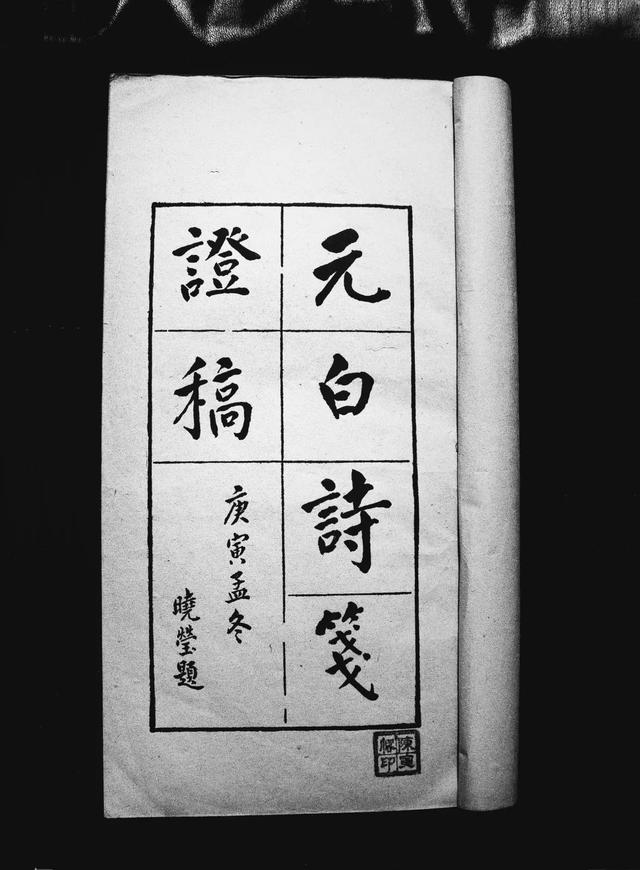 元白詩箋
證稿
庚寅孟冬
曉瑩題
陳寅
恪印